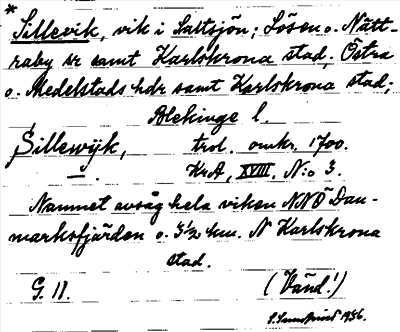 *
Sillevik, vik i Saltsjön; Lösen o. Nätt-
raby sr samt Karlskrona stad, Östra
o. Medelstads hdr samt Karlskrona stad;
Blekinge l.
Sillewÿk, trol. omkr. 1700.
KrA, XVIII, N:o 3.
Namnet avsåg hela viken NNÖ Dan-
marksfjärden o. 3½ km. N Karlskrona
stad.
G. II. (Vänd!)
1936.